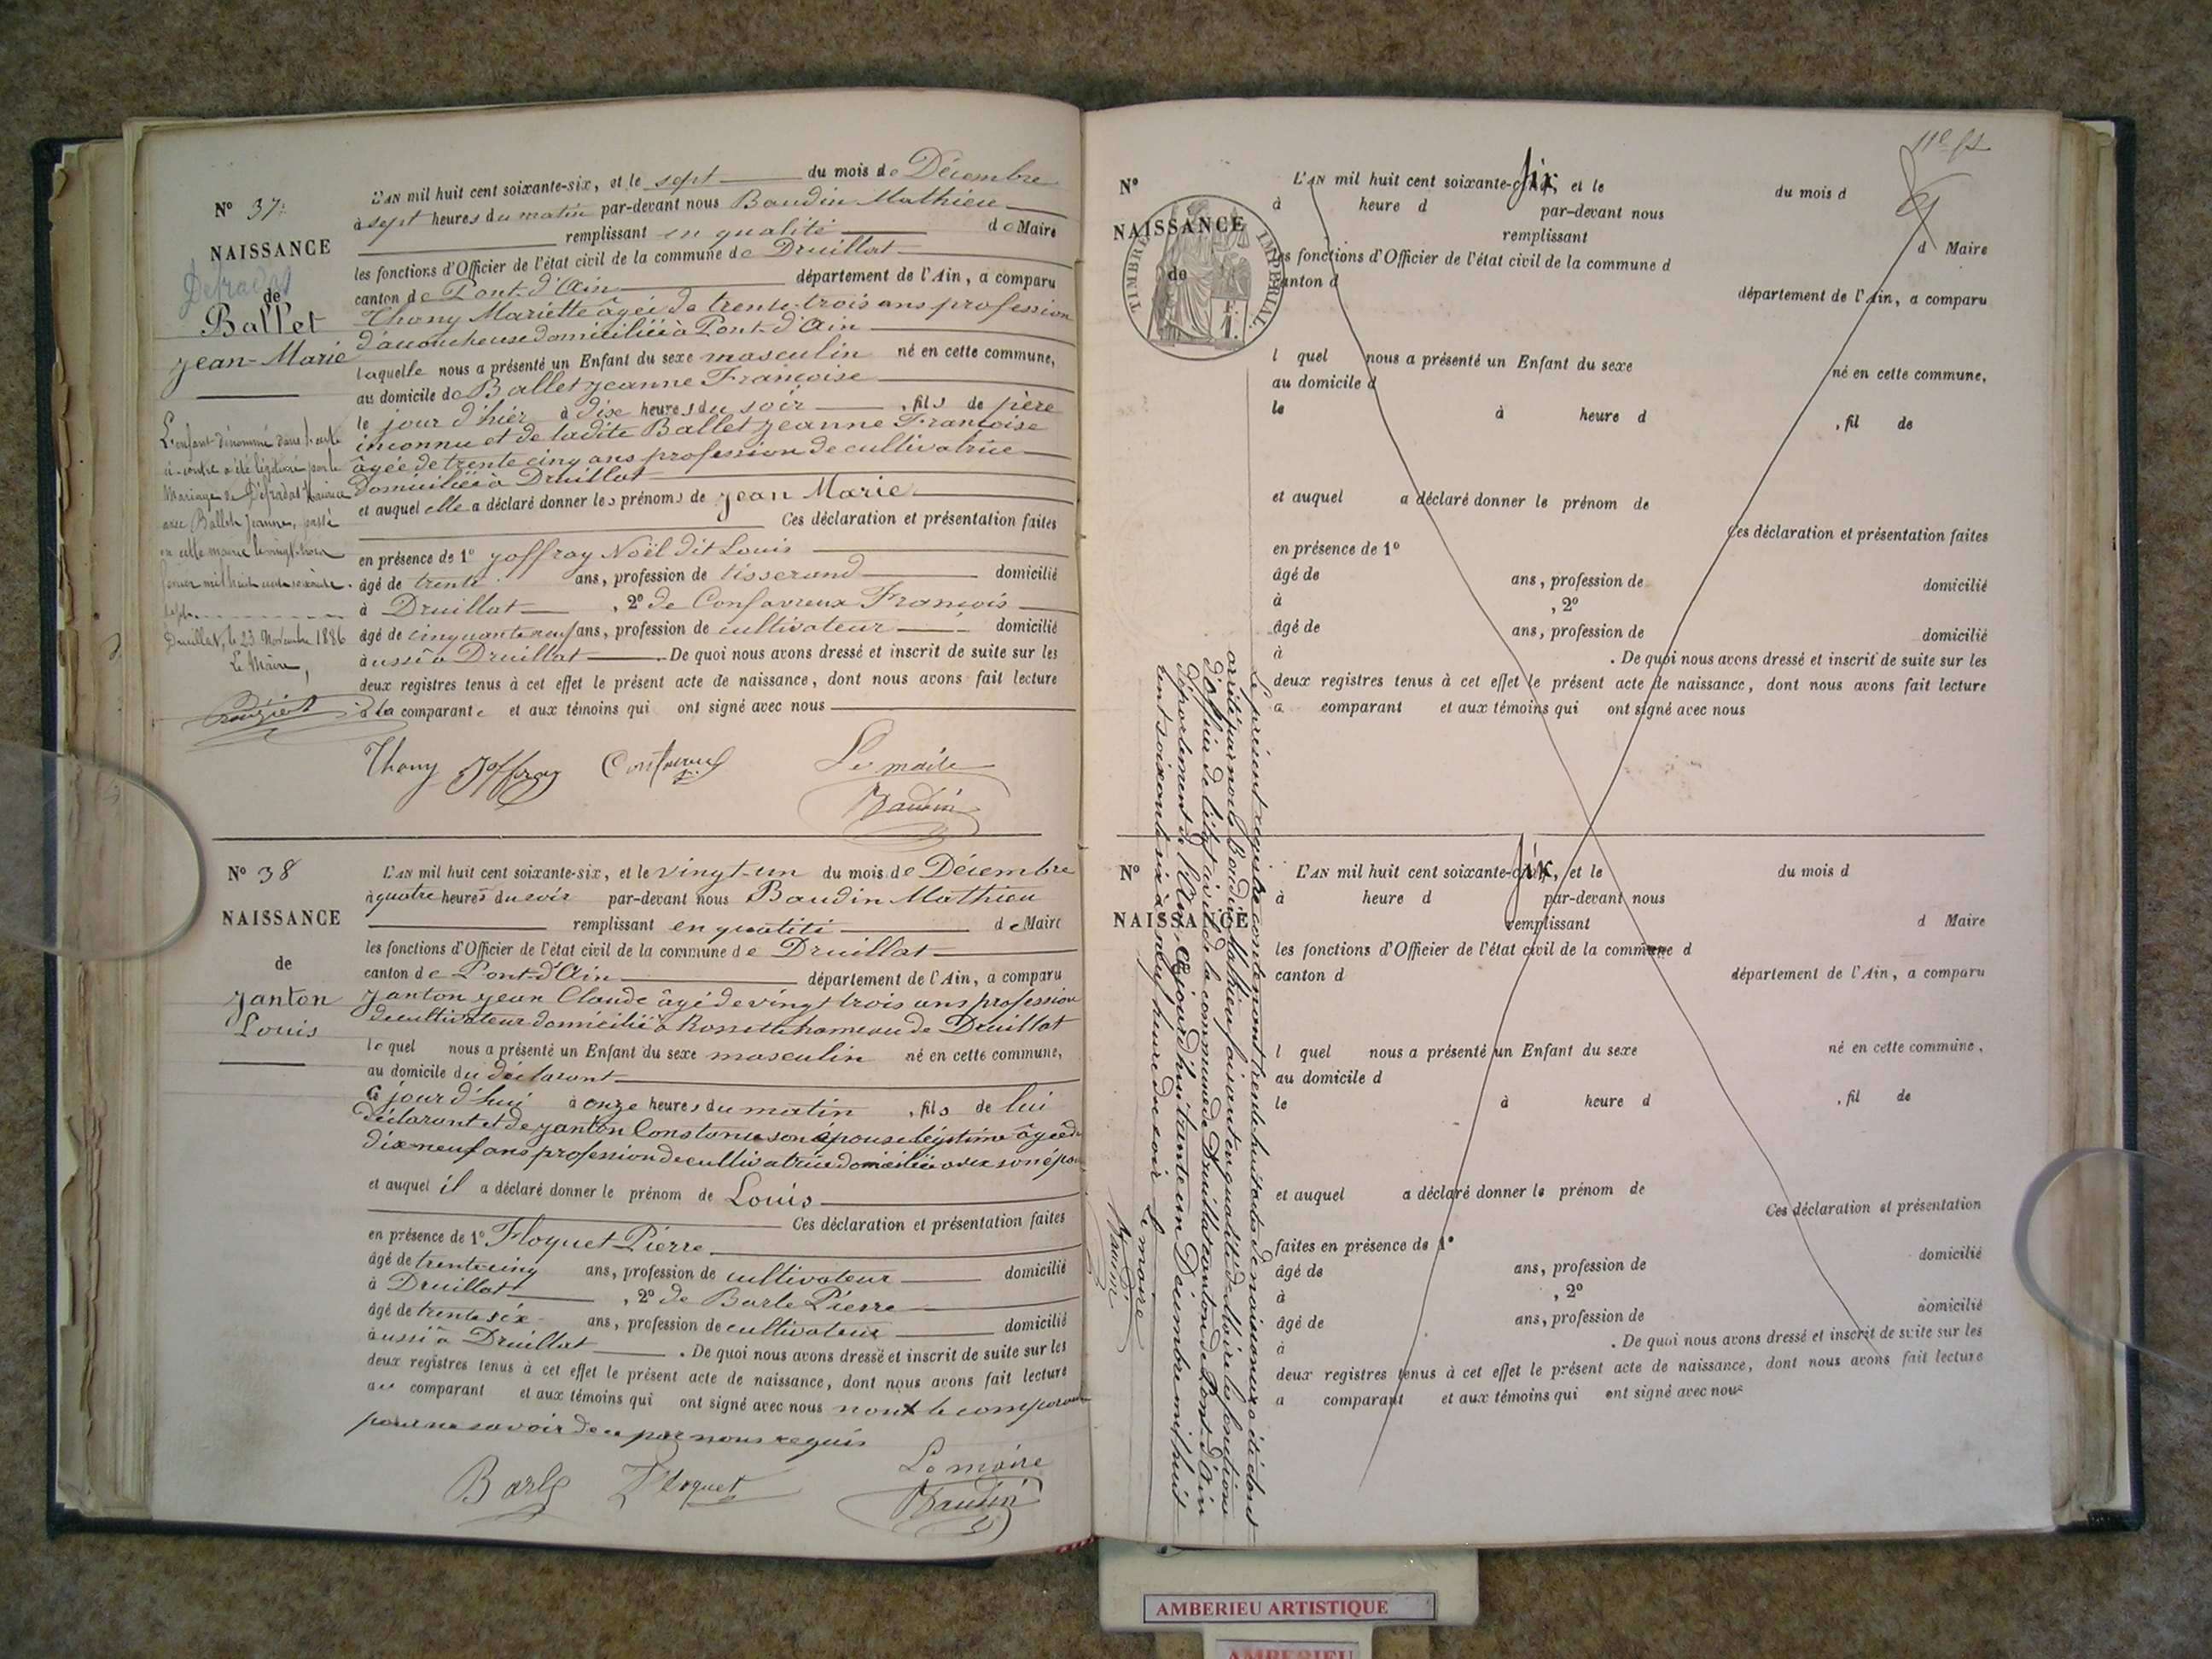 Nº 37.
NAISSANCE
Defradat
de
Ballet
Jean-Marie
L'enfant dénommé dans l'acte
ci-contre a été légitimé par le
Mariage de Défradat Maurice
avec Ballet Jeanne, passé
en cette mairie le vingt-trois
février mil huit cent soixante
sept.
Druillat, le 23 Novembre 1886
Le Maire,
L'AN mil huit cent soixante-six, et le sept du mois de Décembre
à sept heures du matin par-devant nous Baudin Mathieu
remplissant en qualité de Maire
les fonctions d'Officier de l'état civil de la commune de Druillat
canton de Pont-d'Ain département de l'Ain, a comparu
Thony Mariette âgée de trente-trois ans profession
d'accoucheuse domiciliée à Pont-d'Ain
laquelle nous a présenté un Enfant du sexe masculin né en cette commune,
au domicile de Ballet Jeanne Françoise
le jour d'hier à dix heures du soir , fils de père
inconnu et de ladite Ballet Jeanne Françoise
âgée de trente cinq ans profession de cultivatrice
domiciliée à Druillat
et auquel elle a déclaré donner les prénoms de Jean Marie
Ces déclaration et présentation faites
en présence de 1º Joffray Noël dit Louis
âgé de trente ans, profession de tisserand domicilié
à Druillat , 2º de Confavreux François
âgé de cinquante neuf ans, profession de cultivateur domicilié
aussi à Druillat . De quoi nous avons dressé et inscrit de suite sur les
deux registres tenus à cet effet le présent acte de naissance, dont nous avons fait lecture
à la comparante et aux témoins qui ont signé avec nous
Thony Joffray Confavreux Le maire
Baudin
Nº 38
NAISSANCE
de
Janton
Louis
L'AN mil huit cent soixante-six, et le vingt-un du mois de Décembre
à quatre heures du soir par-devant nous Baudin Mathieu
remplissant en qualité de Maire
les fonctions d'Officier de l'état civil de la commune de Druillat
canton de Pont-d'Ain département de l'Ain, a comparu
Janton Jean Claude âgé de vingt trois ans profession
de cultivateur domicilié à Rossette hameau de Druillat
lequel nous a présenté un Enfant du sexe masculin né en cette commune,
au domicile du déclarant
ce jour d'hui à onze heures du matin , fils de lui
déclarant et de Janton Constance son épouse légitime âgée de
dix-neuf ans profession de cultivatrice domiciliée avec son épou
et auquel il a déclaré donner le prénom de Louis
Ces déclaration et présentation faites
en présence de 1º Floquet Pierre
âgé de trente cinq ans, profession de cultivateur domicilié
à Druillat , 2º de Barle Pierre
âgé de trente six ans, profession de cultivateur domicilié
aussi à Druillat . De quoi nous avons dressé et inscrit de suite sur les
deux registres tenus à cet effet le présent acte de naissance, dont nous avons fait lecture
au comparant et aux témoins qui ont signé avec nous non le comparant
pour ne savoir de ce par nous requis
Barle Floquet Le maire
Baudin
11e ft
Nº
NAISSANCE
de
TIMBRE IMPERIAL
L'AN mil huit cent soixante-six, et le du mois d
à heure d par-devant nous
remplissant d Maire
les fonctions d'Officier de l'état civil de la commune d
canton d département de l'Ain, a comparu
l quel nous a présenté un Enfant du sexe né en cette commune,
au domicile d
le à heure d , fil de
et auquel a déclaré donner le prénom de
Ces déclaration et présentation faites
en présence de 1º
âgé de ans, profession de domicilié
à , 2º
âgé de ans, profession de domicilié
à . De quoi nous avons dressé et inscrit de suite sur les
deux registres tenus à cet effet le présent acte de naissance, dont nous avons fait lecture
a comparant et aux témoins qui ont signé avec nous
Le présent registre contenant trente huit actes de naissances a été clos et
arrêté par nous Baudin Mathieu faisant en qualité de Maire les fonctions
d'officier de l'état civil de la commune de Druillat canton de Pont-d'Ain
département de l'Ain, ce jourd'hui trente un Décembre mil huit
cent soixante six à neuf heures du soir
Le maire
Baudin
Nº
NAISSANCE
L'AN mil huit cent soixante-six, et le du mois d
à heure d par-devant nous
remplissant d Maire
les fonctions d'Officier de l'état civil de la commune d
canton d département de l'Ain, a comparu
l quel nous a présenté un Enfant du sexe né en cette commune,
au domicile d
le à heure d , fil de
et auquel a déclaré donner le prénom de
Ces déclaration et présentation
faites en présence de 1º
âgé de ans, profession de domicilié
à , 2º
âgé de ans, profession de domicilié
à . De quoi nous avons dressé et inscrit de suite sur les
deux registres tenus à cet effet le présent acte de naissance, dont nous avons fait lecture
a comparant et aux témoins qui ont signé avec nous
AMBERIEU ARTISTIQUE
AMBERIEU